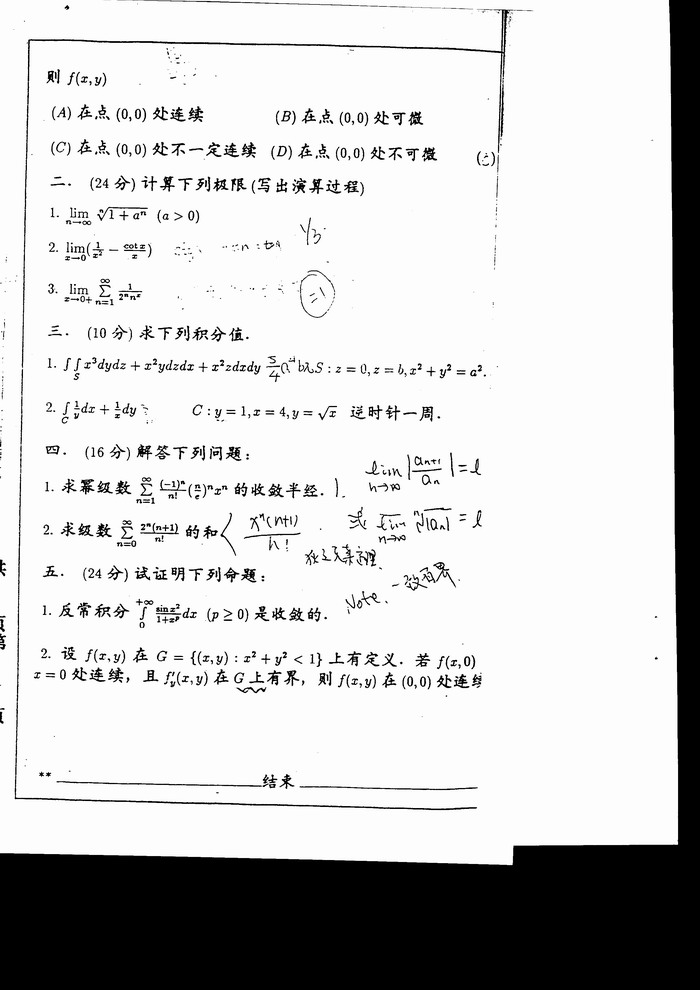 则 f(x,y)
(A) 在点 (0,0) 处连续 (B) 在点 (0,0) 处可微
(C) 在点 (0,0) 处不一定连续 (D) 在点 (0,0) 处不可微
二. (24 分) 计算下列极限 (写出演算过程)
1. lim_{n→∞} ⁿ√(1+aⁿ) (a > 0)
2. lim_{x→0}(1/x² − cot x/x) 1/3
3. lim_{x→0+} ∑_{n=1}^{∞} 1/(2ⁿnˣ) =1
三. (10 分) 求下列积分值.
1. ∬_S x³dydz + x²ydzdx + x²zdxdy 5/4 πa⁴b S : z = 0, z = b, x² + y² = a².
2. ∫_C 1/y dx + 1/x dy C : y = 1, x = 4, y = √x 逆时针一周.
四. (16 分) 解答下列问题:
1. 求幂级数 ∑_{n=1}^{∞} (−1)ⁿ/n! (n/e)ⁿxⁿ 的收敛半经. 1. lim_{n→∞} |a_{n+1}/a_n| = l
2. 求级数 ∑_{n=0}^{∞} 2ⁿ(n+1)/n! 的和 xⁿ(n+1)/n! 或 lim_{n→∞} ⁿ√|a_n| = l
五. (24 分) 试证明下列命题:
Note. 一致有界.
1. 反常积分 ∫_0^{+∞} sin x²/(1+xᵖ) dx (p ≥ 0) 是收敛的.
2. 设 f(x,y) 在 G = {(x,y) : x² + y² < 1} 上有定义. 若 f(x,0)
x = 0 处连续, 且 f′_y(x,y) 在 G 上有界, 则 f(x,y) 在 (0,0) 处连续
** 结束